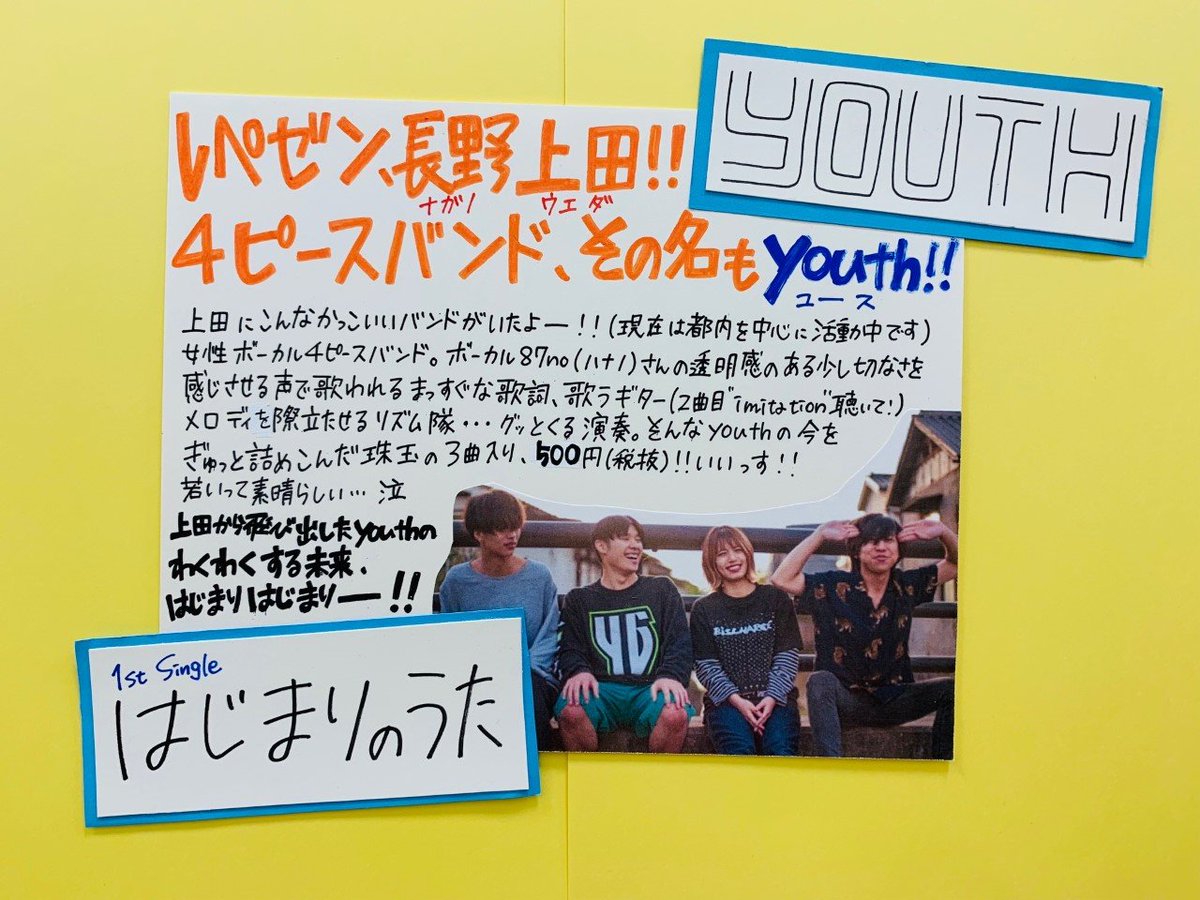 レペゼン、長野上田!!
ナガノ ウエダ
YOUTH
4ピースバンド、その名もyouth!!
ユース
上田にこんなかっこいいバンドがいたよー!!(現在は都内を中心に活動中です)
女性ボーカル4ピースバンド。ボーカル87no(ハナノ)さんの透明感のある少し切なさを
感じさせる声で歌われるまっすぐな歌詞、歌うギター(2曲目"imitation"聴いて!)
メロディを際立たせるリズム隊・・・グッとくる演奏。そんなyouthの今を
ぎゅっと詰めこんだ珠玉の3曲入り、500円(税抜)!!いいっす!!
若いって素晴らしい…泣
上田から飛び出したyouthの
わくわくする未来、
はじまりはじまりー!!
YG
1st Single
はじまりのうた